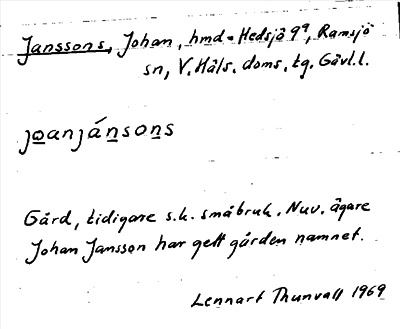 Janssons, Johan, hmd. Hedsjö 9⁹, Ramsjö
sn, V. Häls. doms. tg. Gävl. l.
joanjánsons
Gård, tidigare s.k. småbruk. Nuv. ägare
Johan Jansson har gett gården namnet.
Lennart Thunvall 1969